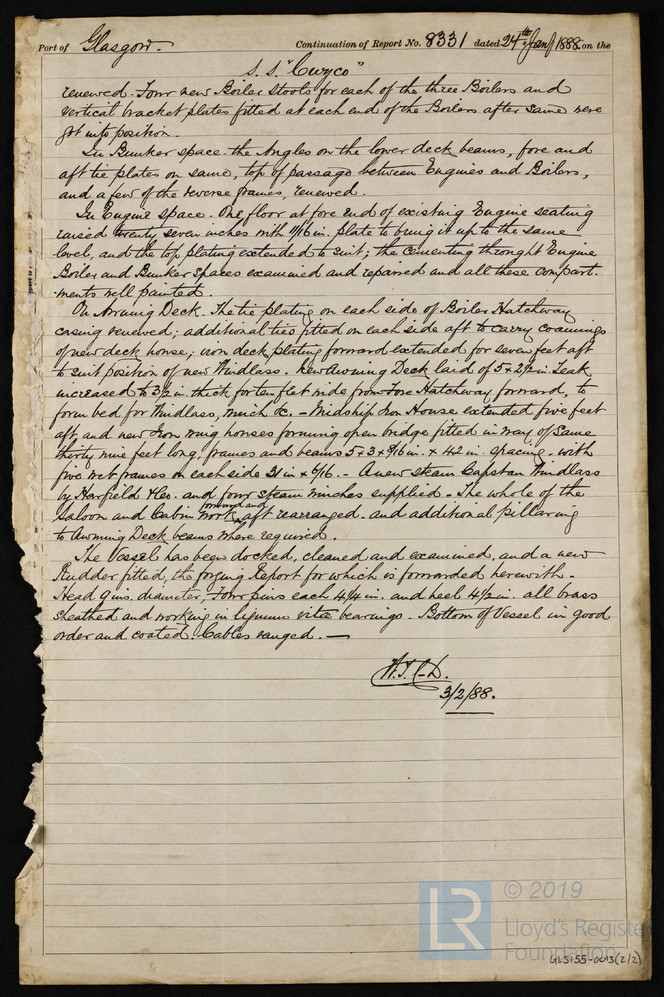 Port of Glasgow. Continuation of Report No. 8331 dated 24th Jany 1888 on the
S.S. "Cuzco"
renewed. Four new Boiler stools for each of the three Boilers and
vertical bracket plates fitted at each end of the Boilers after same were
got into position.
In Bunker space. the Angles on the lower deck beams, fore and
aft tie plates on same, top of passage between Engines and Boilers,
and a few of the reverse frames, renewed.
In Engine space. One floor at fore end of existing Engine seating
raised twenty seven inches with 7/16 in. plate to bring it up to the same
level, and the top plating extended to suit; the cementing throught Engine
Boiler and Bunker spaces examined and repaired and all these compart-
ments well painted.
On Awning Deck. The tie plating on each side of Boiler Hatchway
casing renewed; additional ties fitted on each side aft to carry coamings
of new deck house; iron deck plating forward extended for seven feet aft
to suit position of new Windlass. New Awning Deck laid of 5 x 2 1/2 in Teak
increased to 3 1/2 in. thick for ten feet wide from Fore Hatchway forward, to
form bed for Windlass, winch &c. - Midship Iron House extended five feet
aft, and new Iron wing houses forming open bridge fitted in way of same
thirty nine feet long, frames and beams 5 x 3 x 5/16 in. x 42 in. spacing. with
five web frames on each side 21 in x 6/16. - A new steam Capstan Windlass
by Harfield &Co. and four steam winches supplied - The whole of the
Saloon and Cabin work forward and aft rearranged. and additional pillaring
to Awning Deck beams where required.
The Vessel has been docked, cleaned and examined, and a new
Rudder fitted, the forging Report for which is forwarded herewith -
Head 9 ins. diameter, Four pins each 4 1/4 in. and heel 4 1/2 in. all brass
sheathed and working in lignum vitæ bearings - Bottom of Vessel in good
order and coated. Cables ranged. -
3/2/88.
© 2019
LR
Lloyd's Register
Foundation
GLS155-0013(2/2)